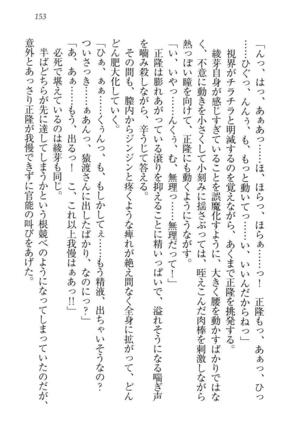 153
「んっ、はっ、あぁあっ……ほ、ほらっ、ほらぁ……っ！　正隆もっ、あぁっ、ひっ
……ひぐっ、んんぅ、も、もっと動いてっ……い、いいんだからねっ」
視界がチラチラと明滅するのを覚えながら、あくまで正隆を挑発する。
綾芽自身が感じすぎていることを誤魔化すように、大きく腰を動かすばかりではな
く、不意に動きを小さくして小刻みに揺さぶっては、咥えこんだ肉棒を刺激しながら
熱っぽい瞳を向けて、正隆にも動くようにうながす。
「い、いやっ……んくぅ、む、無理っ……無理だってっ！」
正隆は膨れあがっている滾りを抑えることに精いっぱいで、溢れそうになる喘ぎ声
を噛み殺しながら、辛うじて答える。
その間にも、膣内からジンジンと疼くような痺れが絶え間なく全身に拡がって、どん
どん肥大化していく。
「ひぁ、ぁぁっ……くぅんっ、も、もしかしてぇ……もう精液、出ちゃいそうっ？
ついさっきっ……猿渡さんに出したばかり、なのにっ？」
「あっ、あぁ……もう出るっ！　こ、これ以上我慢はぁあっ！！」
必死で堪えているのは綾芽も同じ。
半ばどちらが先に達してしまうかという根競べのようになってしまっていたのだが、
意外とあっさり正隆が我慢できずに官能の叫びをあげた。